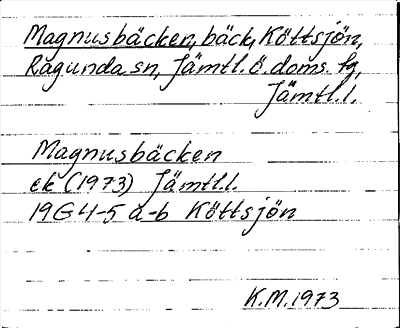 Magnusbäcken, bäck, Köttsjön,
Ragunda sn, Jämtl. ö. doms. fg,
Jämtl. l.
Magnusbäcken
ek (1973) Jämtl. l.
19G 4-5 a-b Köttsjön
K.M. 1973